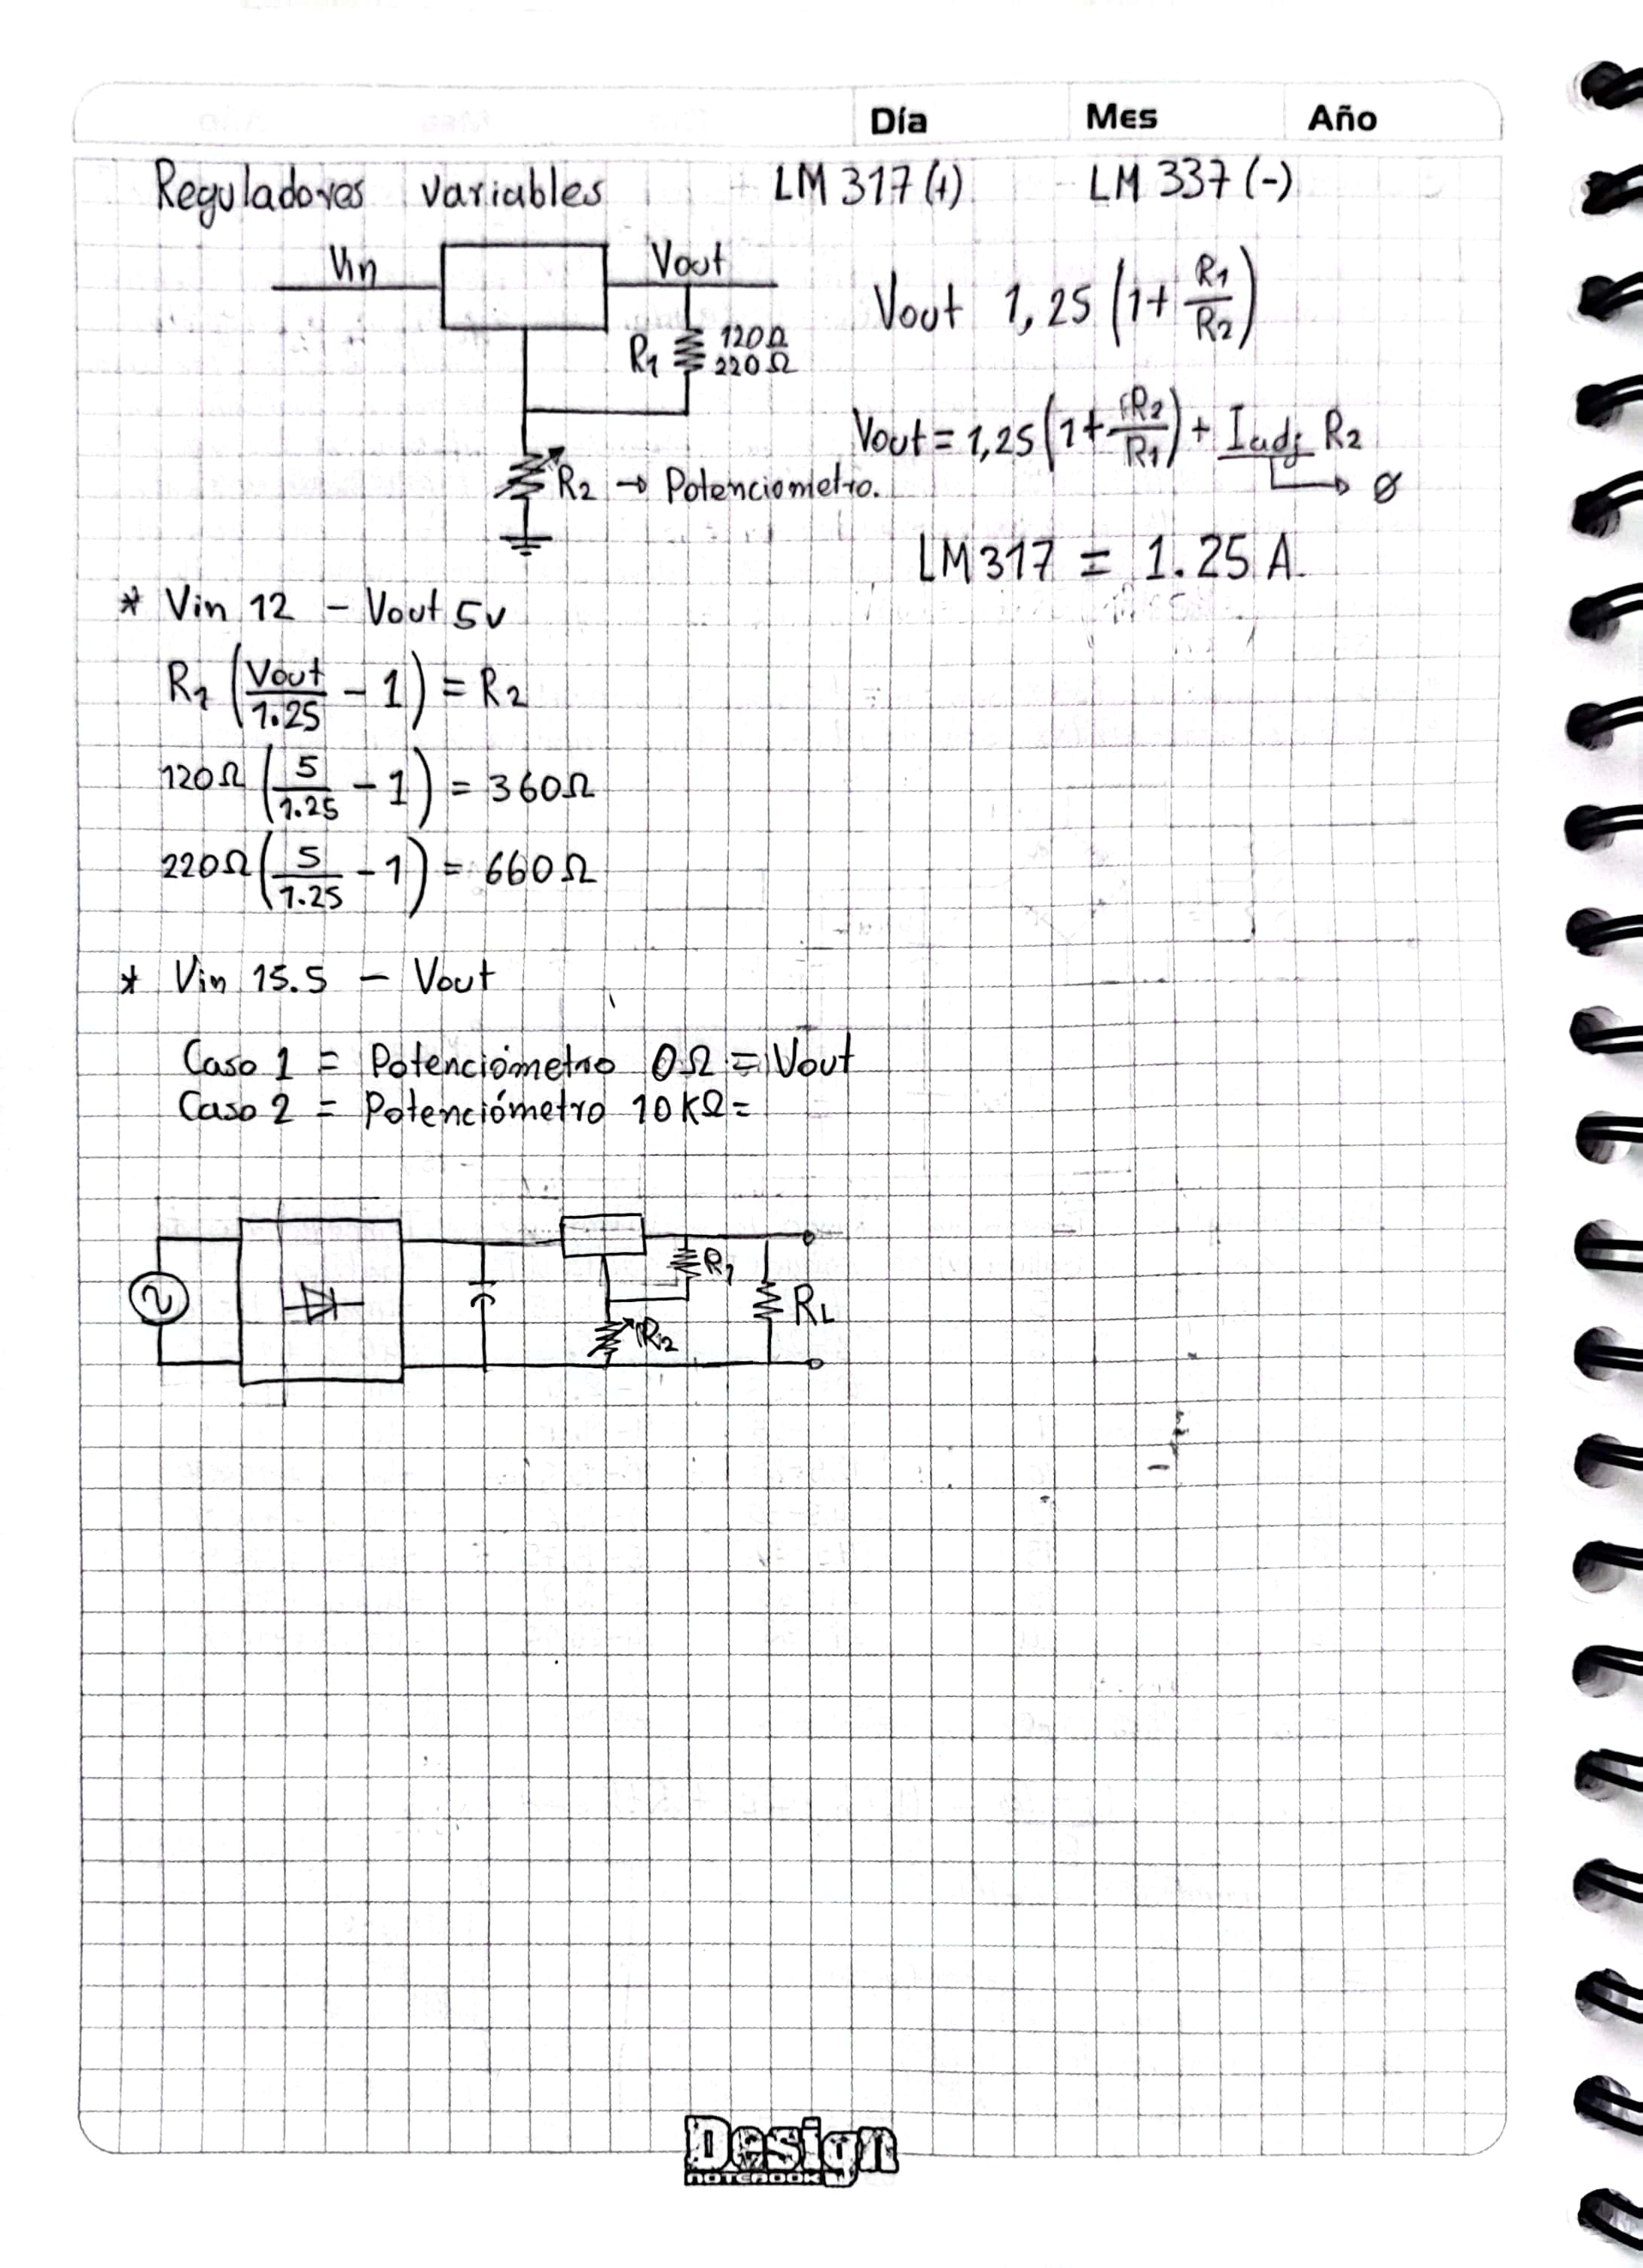 Día Mes Año
Reguladores variables LM 317 (+) LM 337 (-)
Vin Vout
Vout 1,25 (1 + R1/R2)
R1 120Ω
220Ω
Vout = 1,25 (1 + R2/R1) + Iadj R2
R2 → Potenciometro. → Ø
LM317 = 1.25 A.
* Vin 12 - Vout 5v
R1 (Vout/1.25 - 1) = R2
120Ω (5/1.25 - 1) = 360Ω
220Ω (5/1.25 - 1) = 660Ω
* Vin 15.5 - Vout
Caso 1 = Potenciómetro 0Ω = Vout
Caso 2 = Potenciómetro 10KΩ =
R1
R2 RL
Design
NOTEBOOK